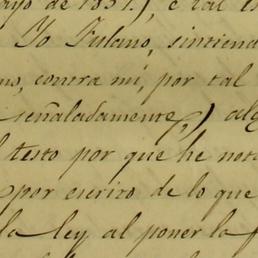 ayo de 1837.), é tal es
Yo Fulano, sintiend
mo, contra mi, por tal
señaladamente,) alg
l testo por que he not
por escrito de lo que
la ley al poner la f